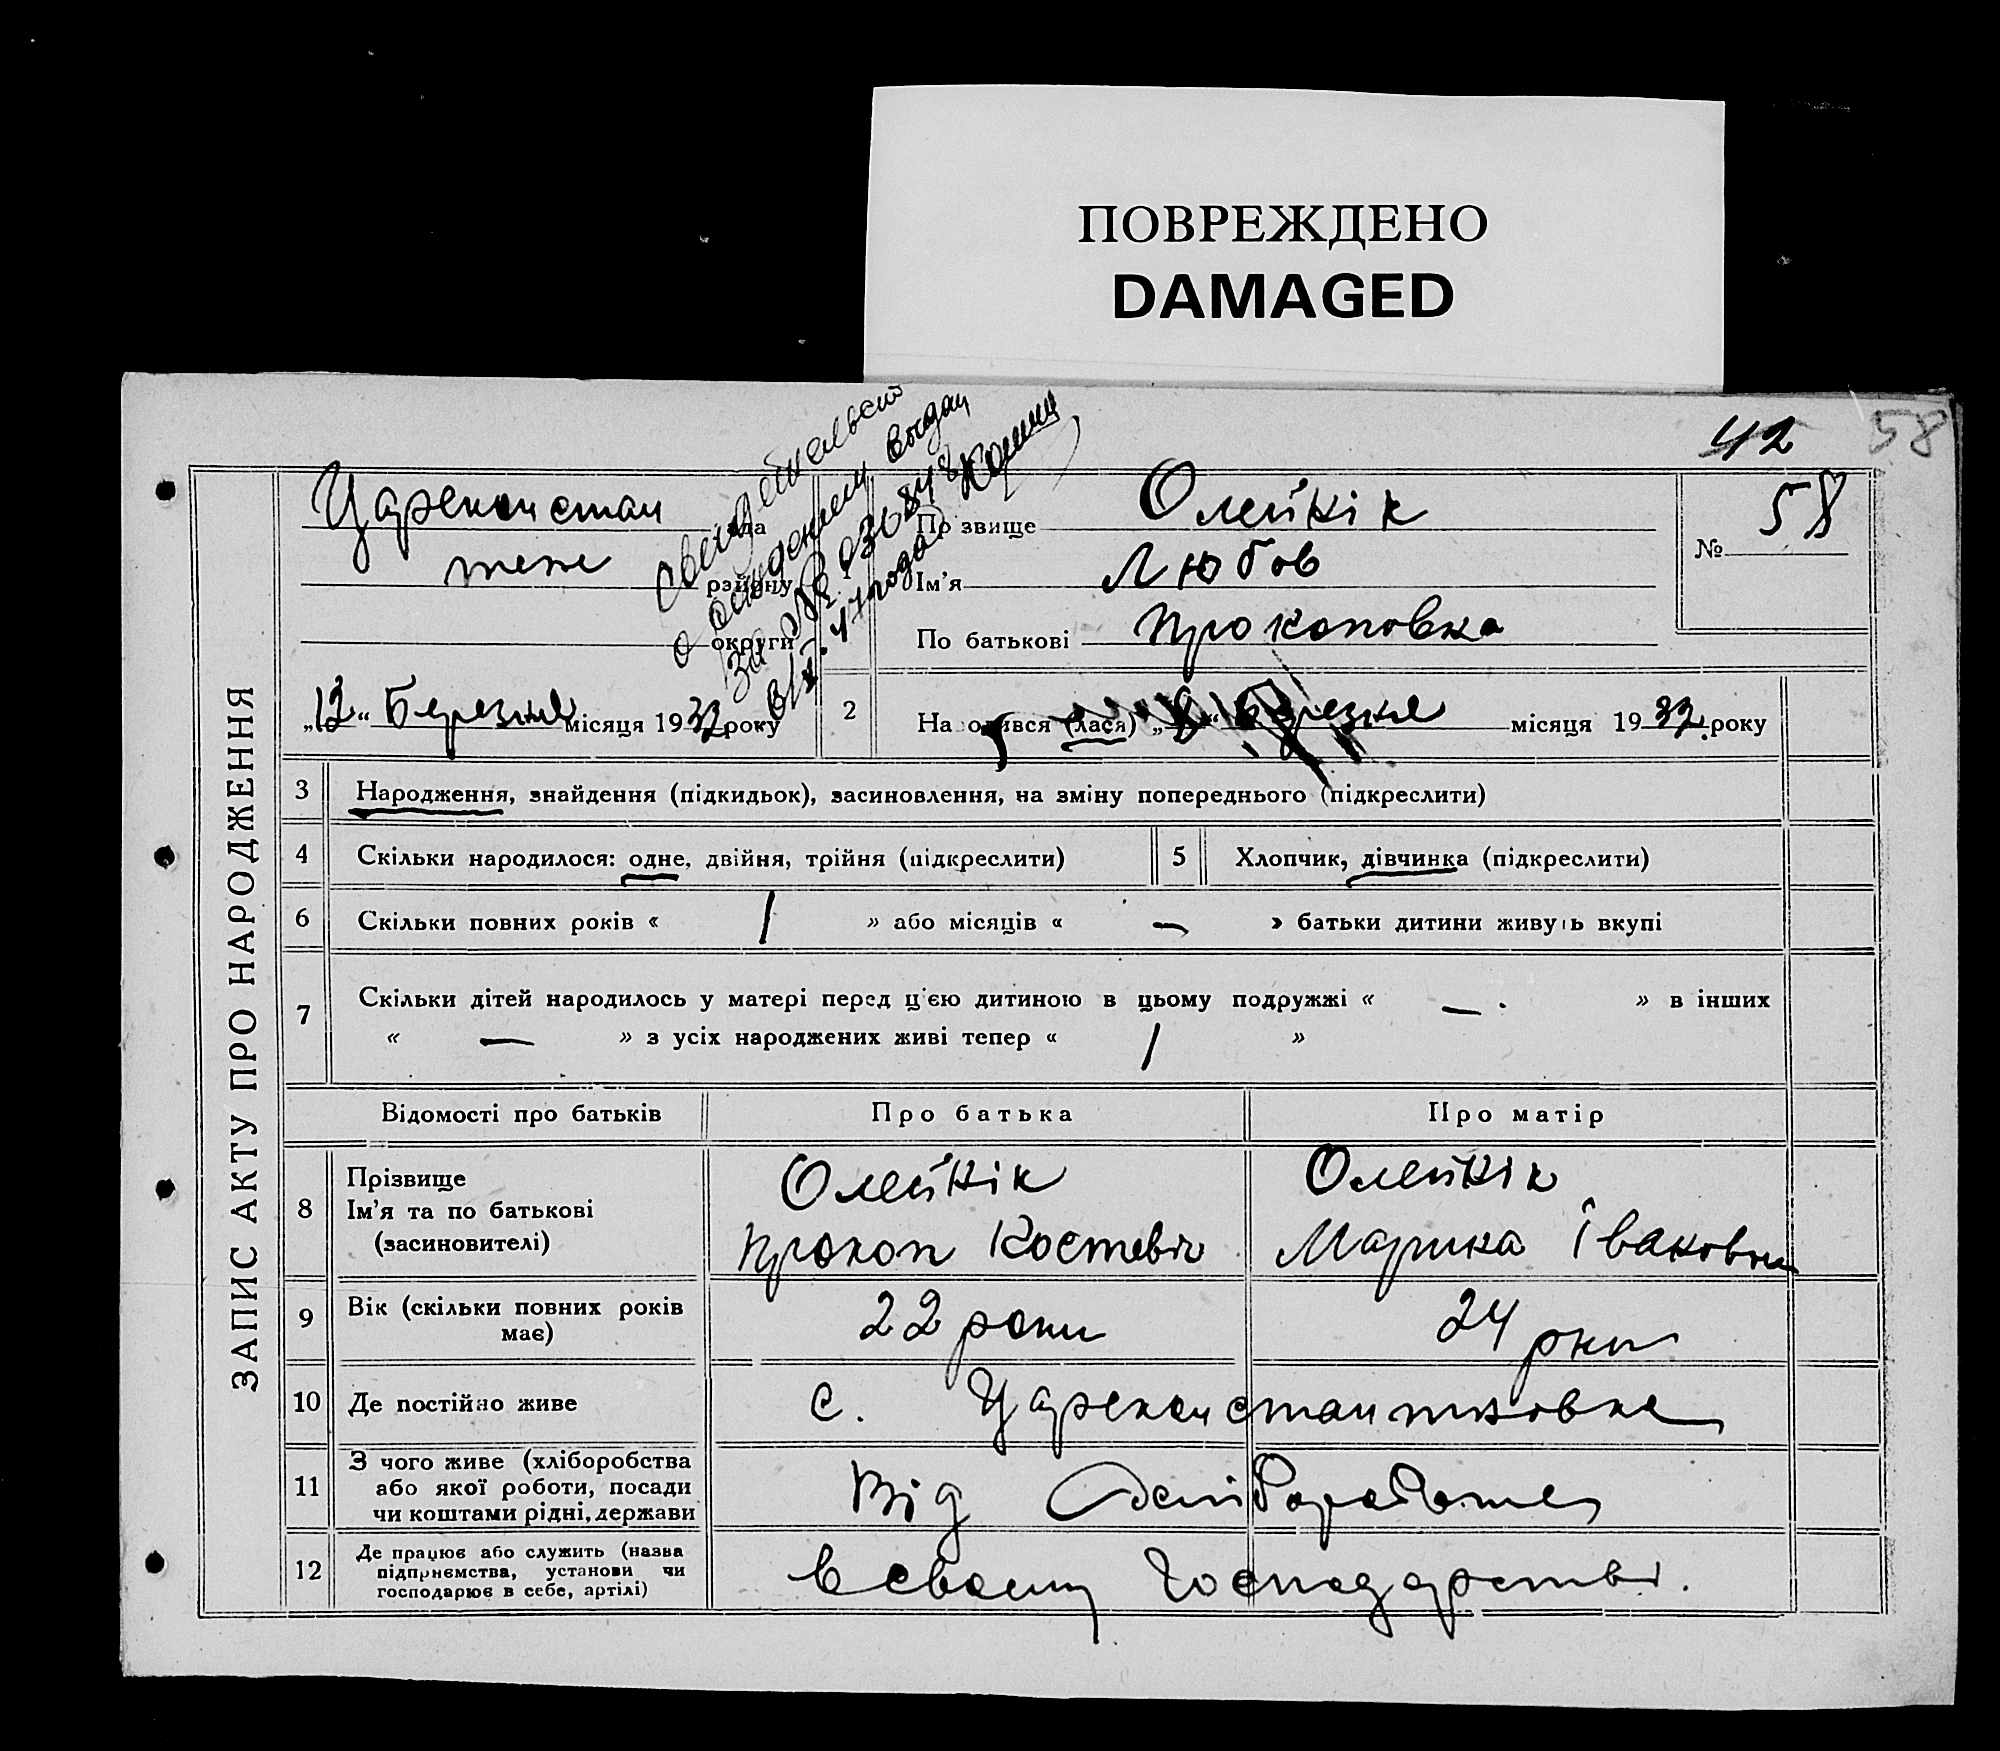 ПОВРЕЖДЕНО
DAMAGED
42 58
ЗАПИС АКТУ ПРО НАРОДЖЕННЯ
Царекон стан рада
теж району
округи
„12“ Березня місяця 1932 року
Свидетельство
о рождении выдан
за №
47 года
1 Прізвище Олейнік
Ім’я Любов
По батькові Прокоповна
№ 58
2 Народився (лася) „8“ Березня місяця 1932 року
3 Народження, знайдення (підкидьок), засиновлення, на зміну попереднього (підкреслити)
4 Скільки народилося: одне, двійня, трійня (підкреслити) 5 Хлопчик, дівчинка (підкреслити)
6 Скільки повних років « 1 » або місяців « — » батьки дитини живуть вкупі
7 Скільки дітей народилось у матері перед ц’єю дитиною в цьому подружжі « — . » в інших
« — » з усіх народжених живі тепер « 1 »
Відомості про батьків Про батька Про матір
8 Прізвище Олейнік Олейнік
Ім’я та по батькові
(засиновителі) Прокоп Костевіч Марика Івановна
9 Вік (скільки повних років 22 роки 24 рки
має)
10 Де постійно живе с. Цареконстантиновке
11 З чого живе (хліборобства
або якої роботи, посади Від
чи коштами рідні, держави
12 Де працює або служить (назва
підприємства, установи чи в своему господарстві.
господарює в себе, артілі)